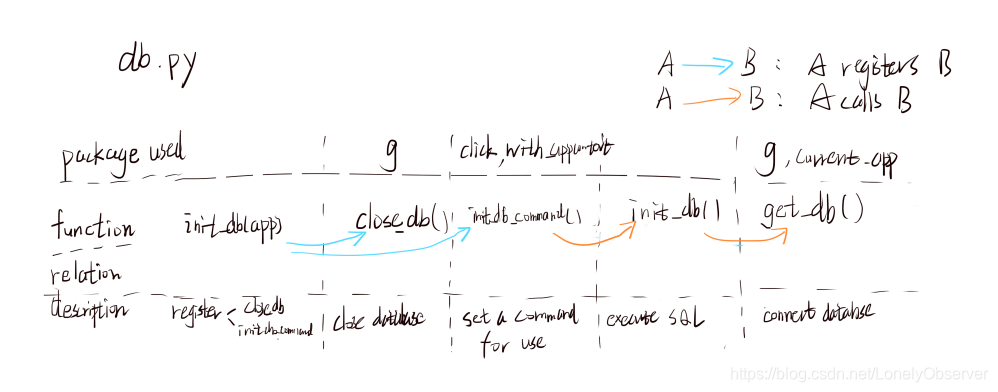 db.py
A → B : A registers B
A → B : A calls B
package used g click, with_appcontext g, current_app
function init_db(app) close_db() init_db_command() init_db() get_db()
relation
description register closedb close database set a command execute SQL connect databse
initdb_command for use
https://blog.csdn.net/LonelyObserver